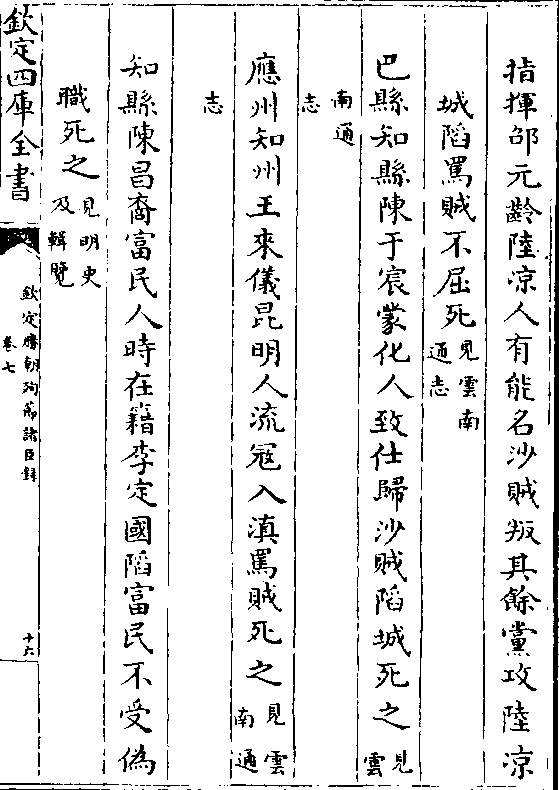 指揮邵元齡陸凉人有能名沙賊叛其餘黨攻陸凉
城陷罵賊不屈死見雲南
通志
巴縣知縣陳于宸蒙化人致仕歸沙賊陷城死之見
雲
南通
志
應州知州王來儀昆明人流冦入滇罵賊死之見雲
南通
志
知縣陳昌裔富民人時在籍李定國陷富民不受偽
職死之見明史
及輯覽
欽定四庫全書
欽定勝朝殉節諸臣錄
卷七
十六